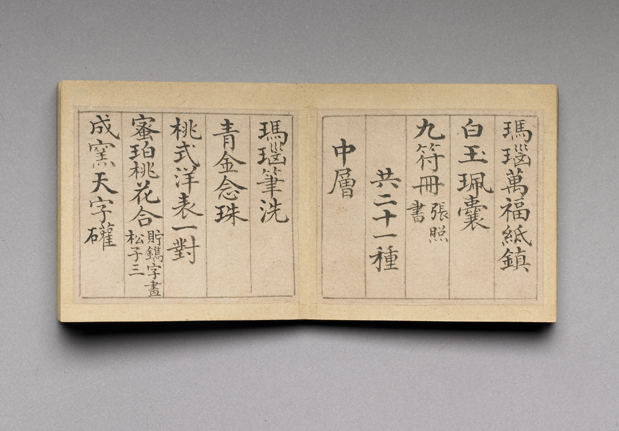 瑪瑙萬福紙鎮
白玉珮囊
九符冊張照書
共二十一種
中層
瑪瑙筆洗
青金念珠
桃式洋表一對
蜜珀桃花合貯鐫字畫松子三
成窯天字罐